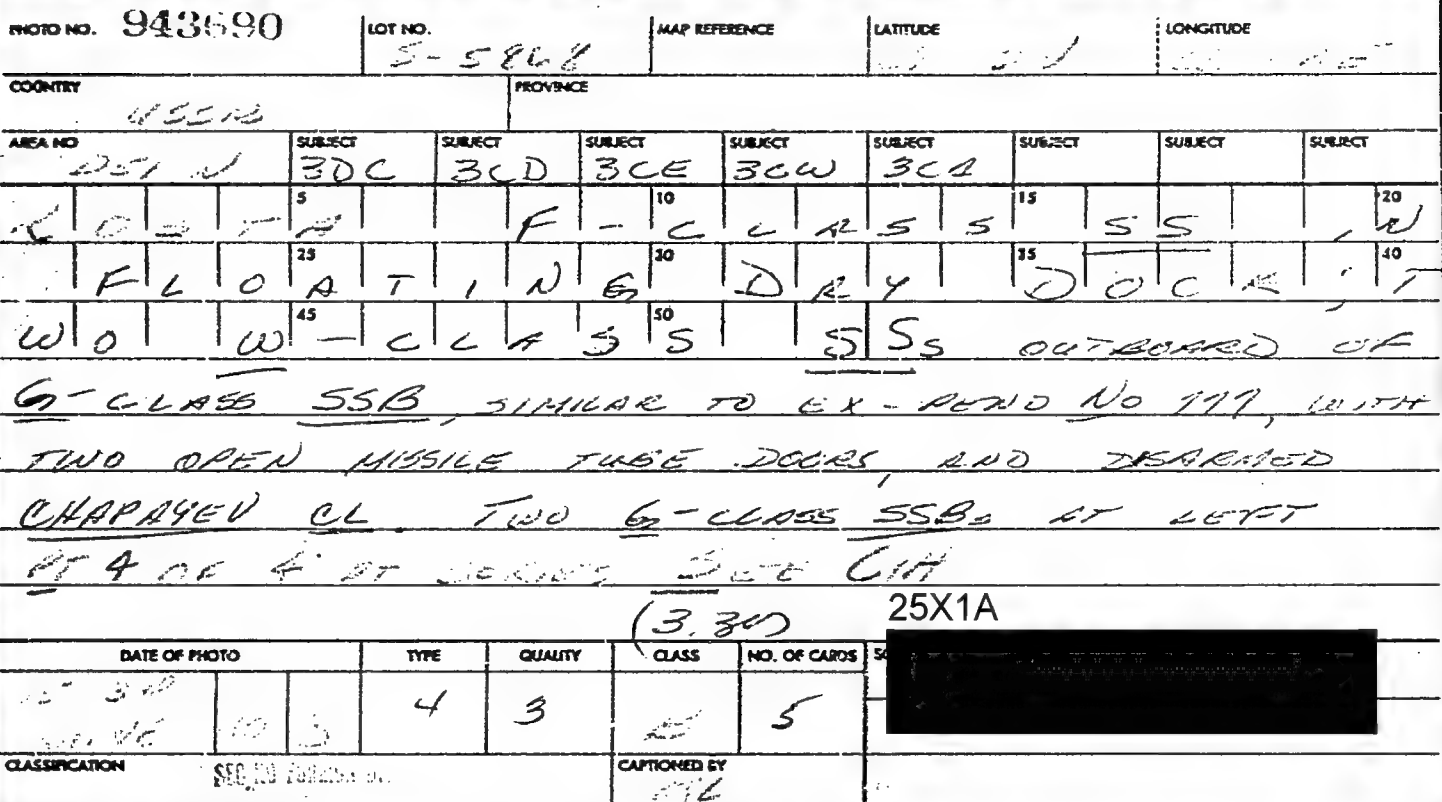 PHOTO NO. 943690 LOT NO. S-5868 MAP REFERENCE LATITUDE LONGITUDE
COUNTRY USSR PROVINCE
AREA NO SUBJECT SUBJECT SUBJECT SUBJECT SUBJECT SUBJECT SUBJECT SUBJECT
3DC 3CD 3CE 3CW 3CA
5 10 15 20
F-CLASS SS, N
25 30 35 40
FLOATING DRY DOCK; T
45 50
WO W-CLASS SSs OUTBOARD OF
G-CLASS SSB, SIMILAR TO EX-PEND No 777, WITH
TWO OPEN MISSILE TUBE DOORS, AND DISARMED
CHAPAYEV CL TWO G-CLASS SSBs AT LEFT
PT 4 OF 4 PT SERIES SEE CIA
25X1A
DATE OF PHOTO TYPE QUALITY CLASS NO. OF CARDS
4 3 5
CLASSIFICATION CAPTIONED BY